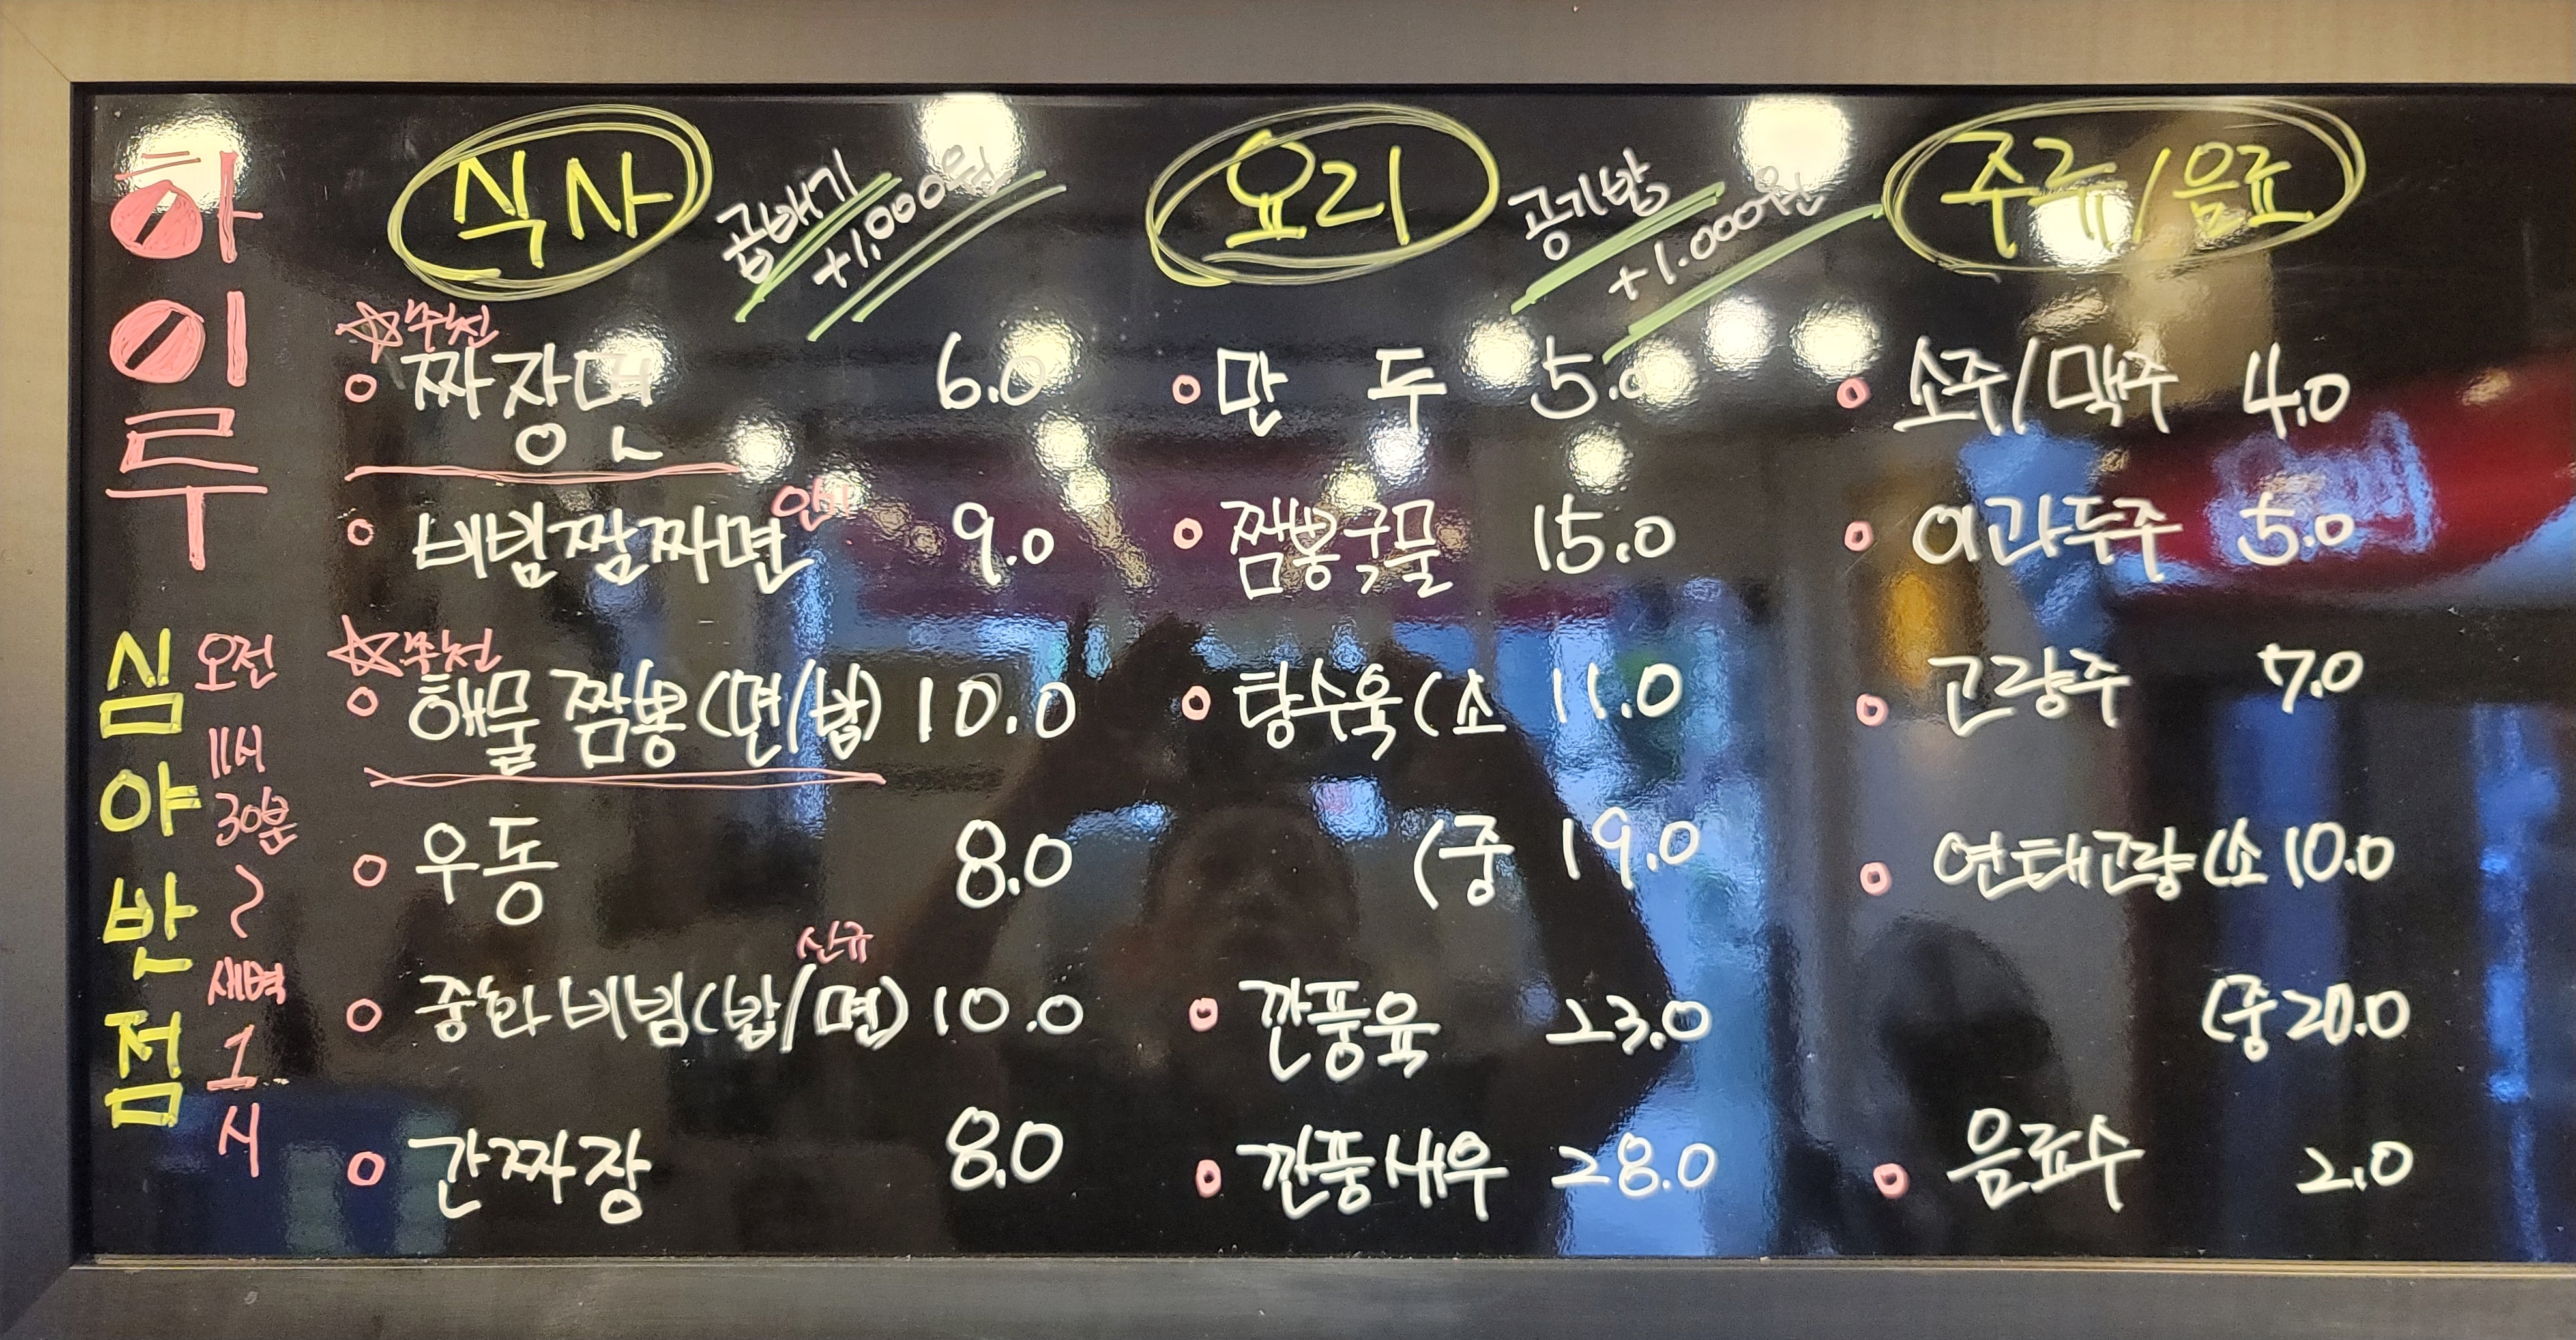 하이루
심야반점
오전
11시
30분
~
새벽
1
시
식사
곱빼기
+1,000원
☆추천
짜장면 6.0
비빔짬짜면 9.0
☆추천
해물짬뽕(면/밥) 10.0
우동 8.0
신규
중화비빔(밥/면) 10.0
간짜장 8.0
요리
공기밥
+1.000원
만두 5.0
짬뽕국물 15.0
탕수육(소 11.0
(중 19.0
깐풍육 23.0
깐풍새우 28.0
주류/음료
소주/맥주 4.0
이과두주 5.0
고량주 7.0
연태고량(소 10.0
(중 20.0
음료수 2.0